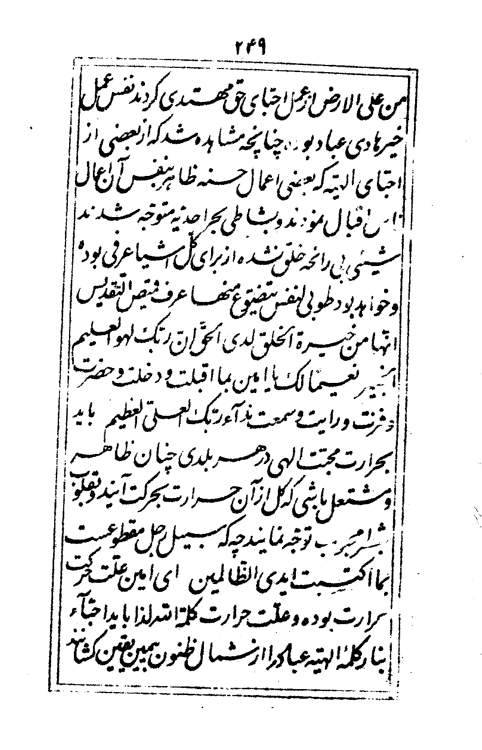 ۲۴۹
من علی الارض از عمل احبای حق مهتدی کردند نفس عمل
خیر هادی عباد بوده چنانچه مشاهده شد که از بعضی از
احبای الهیه که بعضی اعمال حسنه ظاهر بنفس آن اعمال
ناس اقبال نمودند و بشاطی بحر احدیه متوجه شدند
شیئی بی رائحه خلق نشده از برای کل اشیا عرفی بوده
و خواهد بود طوبی لنفس یتضوع منها عرف قمیص التقدیس
انها من خیرة الخلق لدی الحق ان ربک لهو العلیم
الخبیر نعیما لک یا امین بما اقبلت و دخلت و حضرت
و فزت و رایت و سمعت ندآء ربک العلی العظیم باید
بحرارت محبت الهی در هر بلدی چنان ظاهر
و مشتعل باشی که کل از آن حرارت بحرکت آیند و بقلوب
بشطر محبوب توجه نمایند چه که سبیل رجل مقطوعست
بما اکتسبت ایدی الظالمین ای امین علت حرکت
حرارت بوده و علت حرارت کلمة الله لذا باید احباء
بنار کلمه الهیه عباد را از شمال ظنون بیمین یقین کشانند